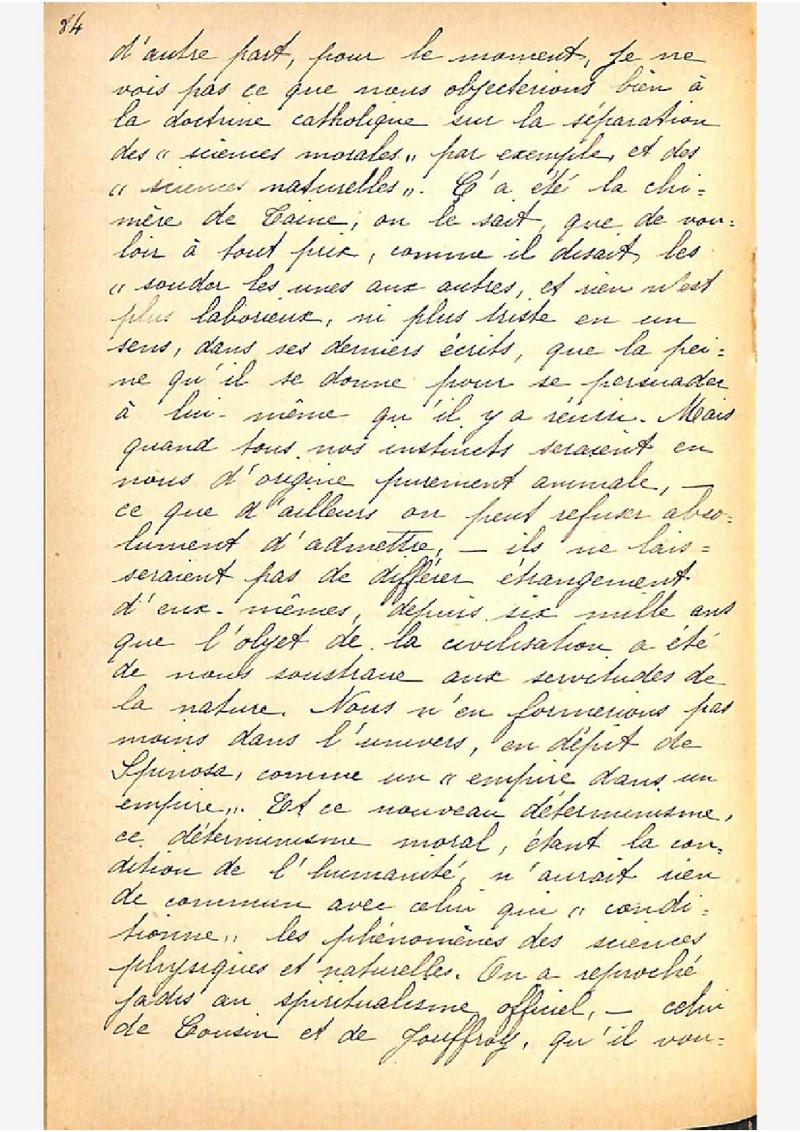 84
d'autre part, pour le moment, je ne
vois pas ce que nous objecterions bien à
la doctrine catholique sur la séparation
des " sciences morales " par exemple, et des
" sciences naturelles ". Ç'a été la chi=
mère de Taine, on le sait, que de vou=
loir à tout prix, comme il disait, les
" souder les unes aux autres, et rien n'est
plus laborieux, ni plus triste en un
sens, dans ses derniers écrits, que la pei=
ne qu'il se donne pour se persuader
à lui-même qu'il y a réussi. Mais
quand tous nos instincts seraient en
nous d'origine purement animale, —
ce que d'ailleurs on peut refuser abso=
lument d'admettre, — ils ne lais=
seraient pas de différer étrangement
d'eux-mêmes, depuis six mille ans
que l'objet de la civilisation a été
de nous soustraire aux servitudes de
la nature. Nous n'en formerions pas
moins dans l'univers, en dépit de
Spinosa, comme un " empire dans un
empire ". Et ce nouveau déterminisme,
ce déterminisme moral, étant la con=
dition de l'humanité, n'aurait rien
de commun avec celui qui " condi=
tionne " les phénomènes des sciences
physiques et naturelles. On a reproché
jadis au spiritualisme officiel, — celui
de Cousin et de Jouffroy, qu'il vou=